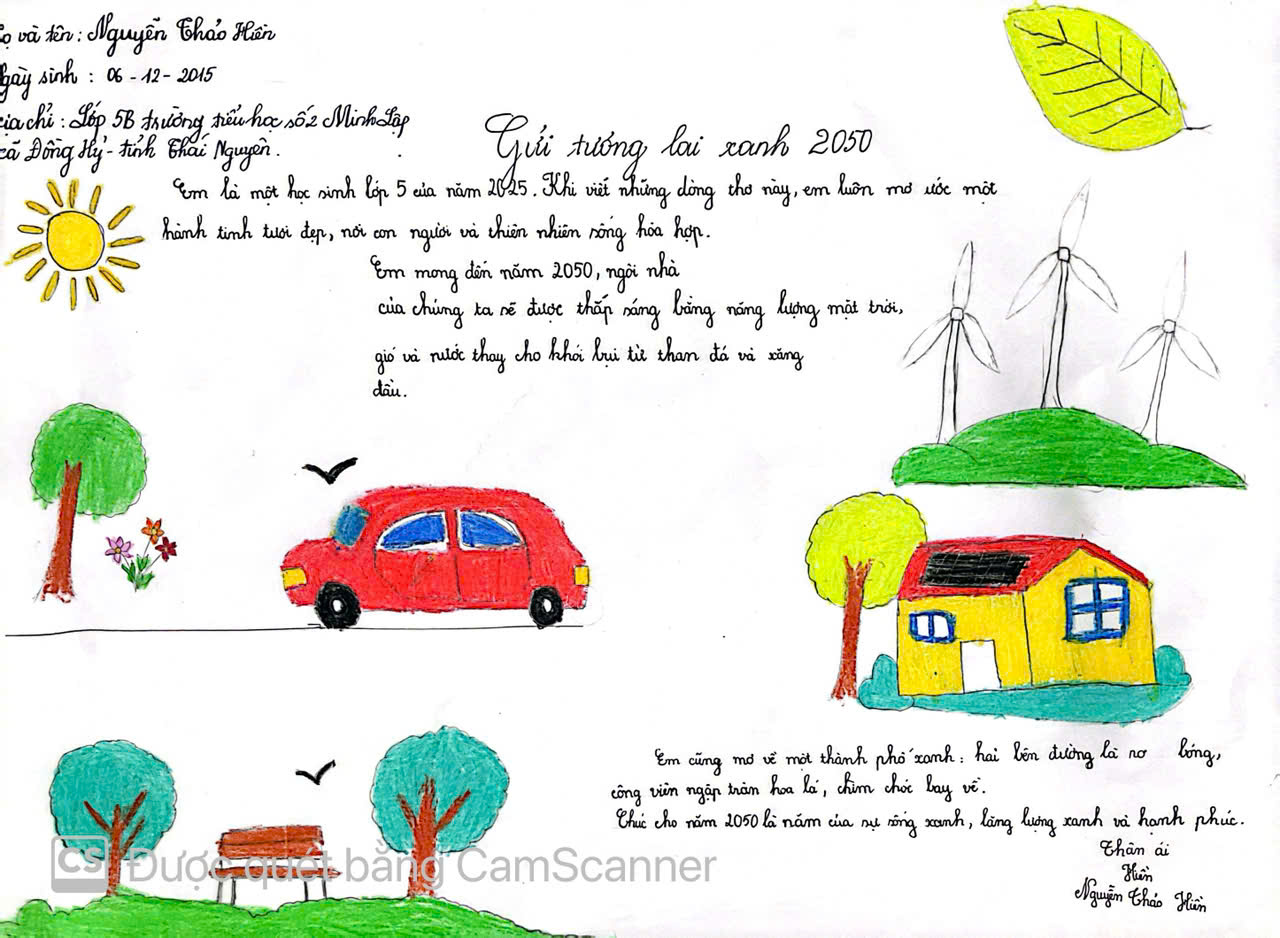 ọ và tên: Nguyễn Thảo Hiền
gày sinh : 06 - 12 - 2015
ịa chỉ : Lớp 5B trường tiểu học số 2 Minh Lập
xã Đồng Hỷ - tỉnh Thái Nguyên.
Gửi tương lai xanh 2050
Em là một học sinh lớp 5 của năm 2025. Khi viết những dòng thơ này, em luôn mơ ước một
hành tinh tươi đẹp, nơi con người và thiên nhiên sống hòa hợp.
Em mong đến năm 2050, ngôi nhà
của chúng ta sẽ được thắp sáng bằng năng lượng mặt trời,
gió và nước thay cho khói bụi từ than đá và xăng
dầu.
Em cũng mơ về một thành phố xanh: hai bên đường là rơ bóng,
công viên ngập tràn hoa lá, chim chóc bay về.
Chúc cho năm 2050 là năm của sự sống xanh, lăng lượng xanh và hạnh phúc.
Thân ái
Hiền
Nguyễn Thảo Hiền
CS Được quét bằng CamScanner